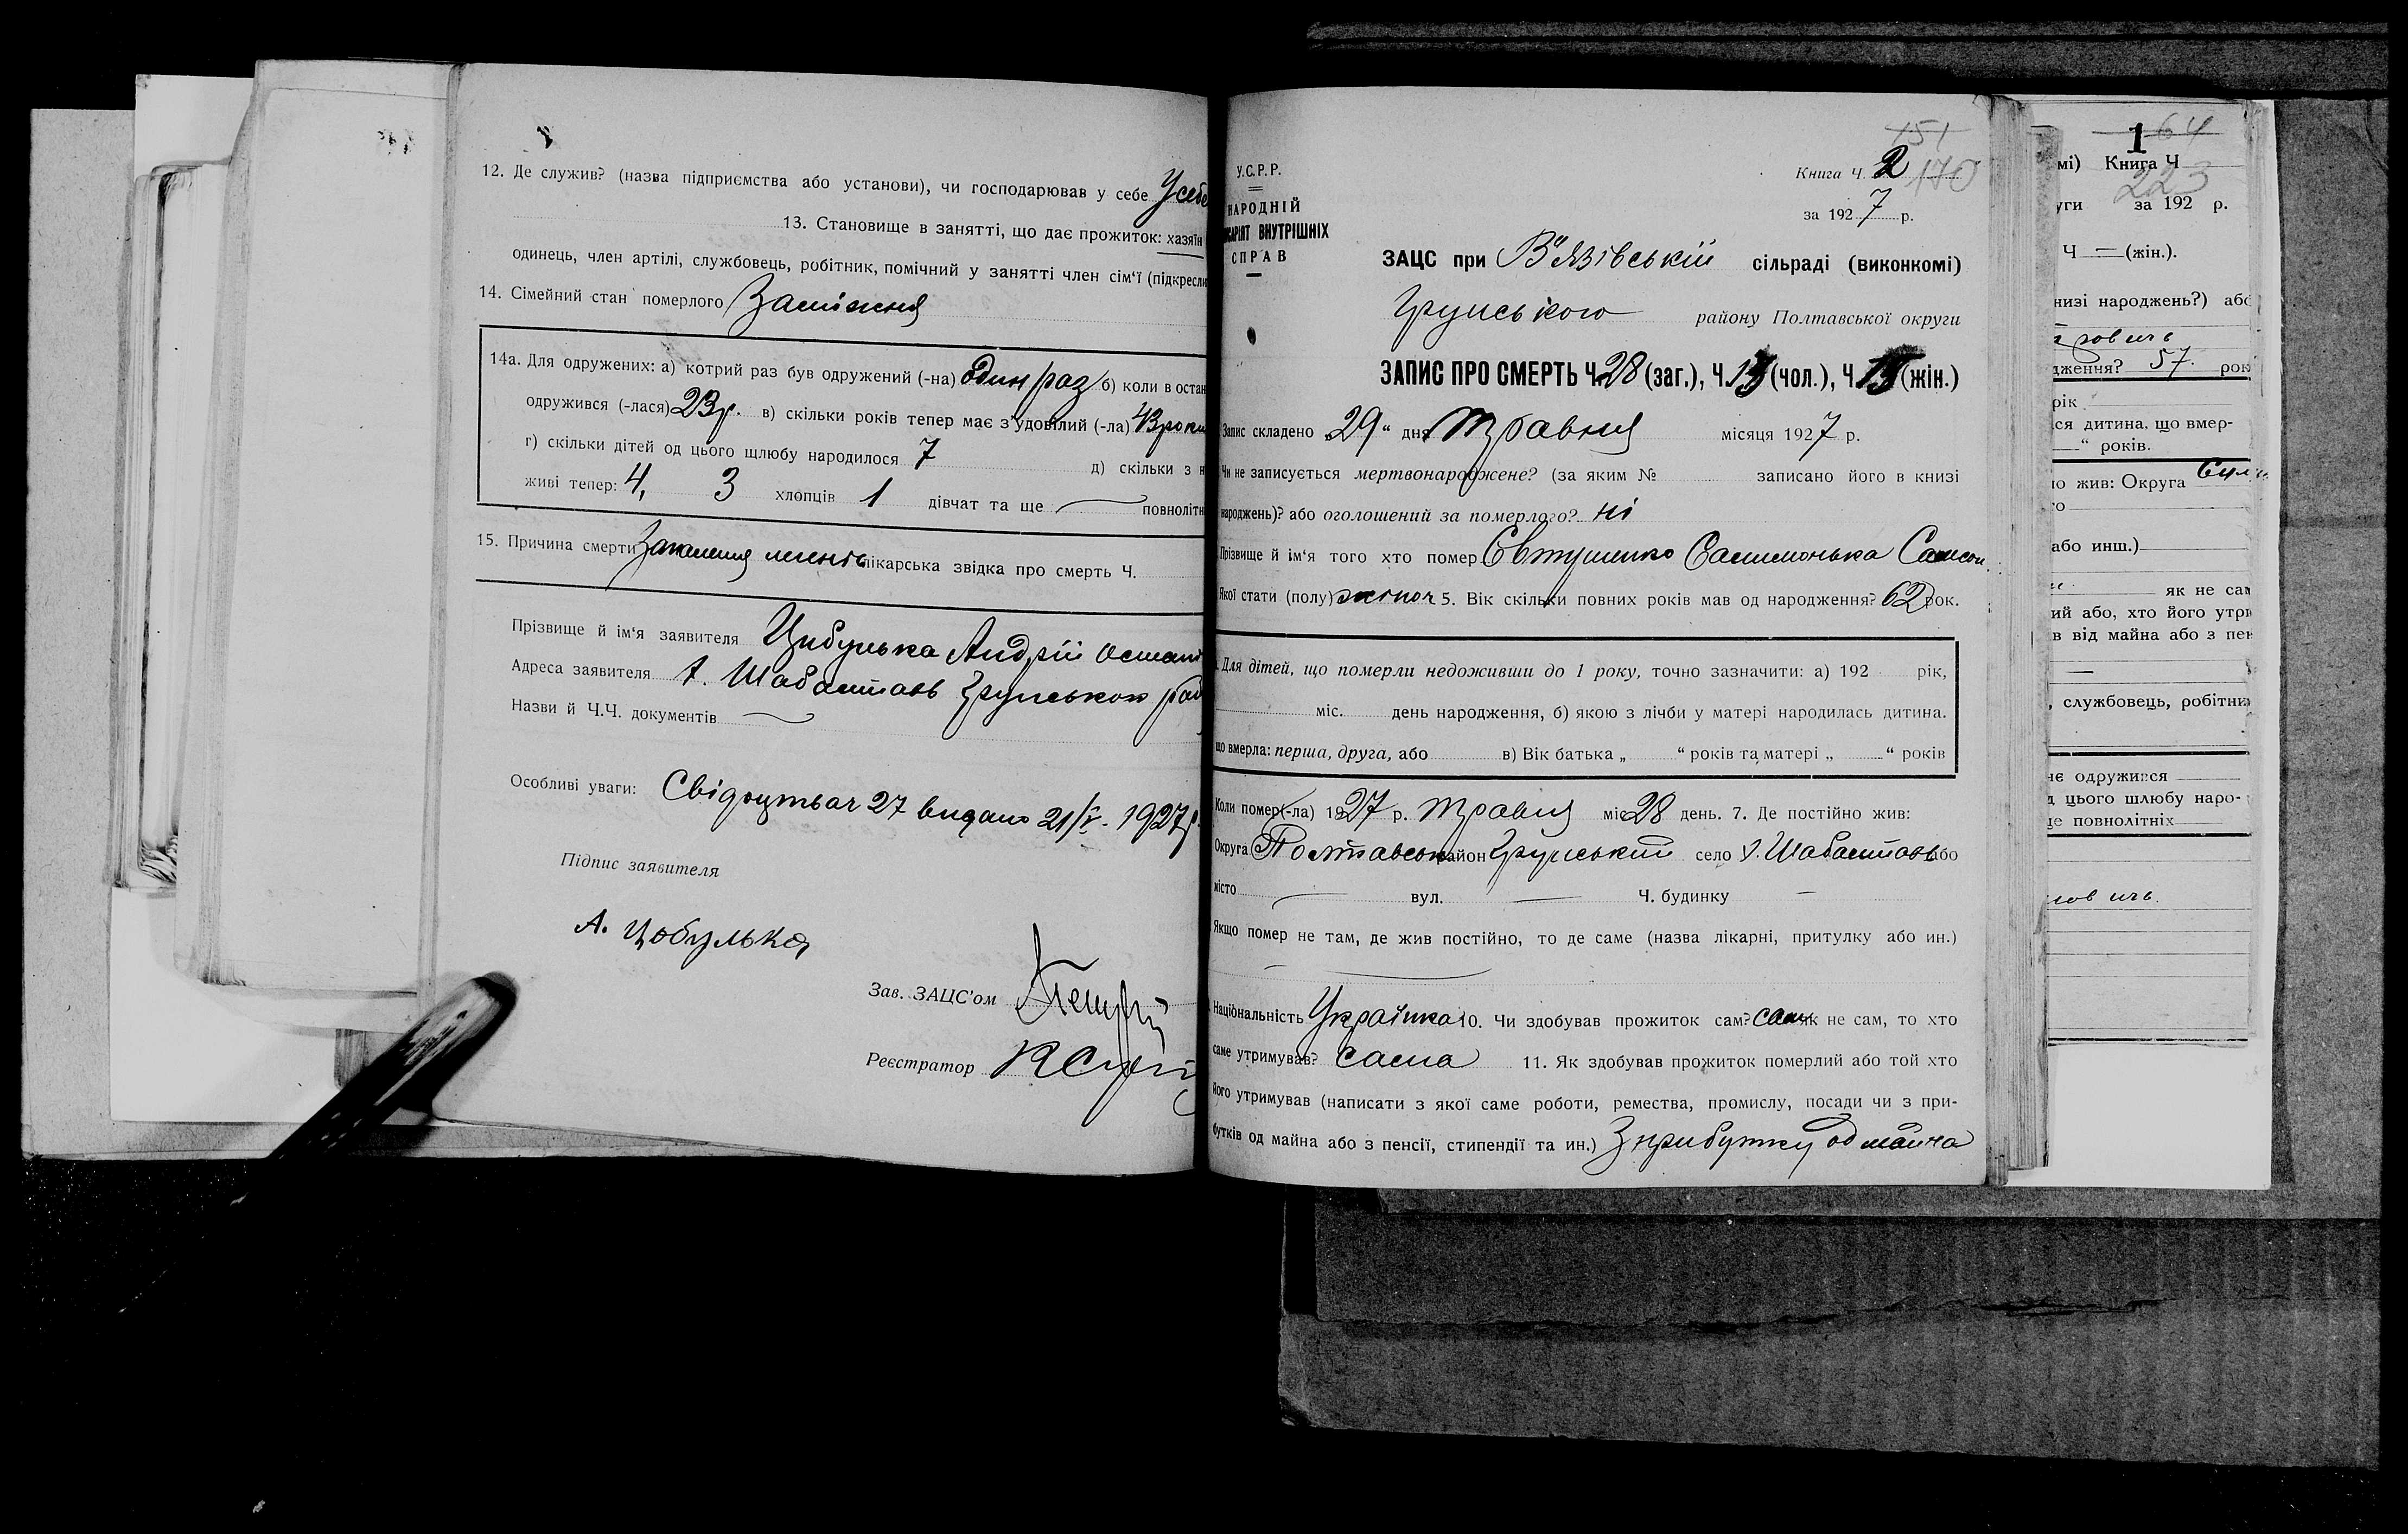 12. Де служив? (назва підприємства або установи), чи господарював у себе Усебе
13. Становище в занятті, що дає прожиток: хазяїн
одинець, член артілі, службовець, робітник, помічний у занятті член сім‘ї (підкресли
14. Сімейний стан померлого Заміжня
14а. Для одружених: а) котрий раз був одружений (-на) один раз б) коли в остан
одружився (-лася) 23р. в) скільки років тепер має з удовілий (-ла) 43 роки
г) скільки дітей од цього шлюбу народилося 7 д) скільки з н
живі тепер: 4, 3 хлопців 1 дівчат та ще — повнолітн
15. Причина смерти Запалення легенів лікарська звідка про смерть Ч.
Прізвище й ім‘я заявителя Цибулька Андрій Остап
Адреса заявителя х. Шабалтаєв Грунського рай
Назви й Ч.Ч. документів —
Особливі уваги: Свідоцтва ч 27 видано 21/V. 1927р.
Підпис заявителя
А. Цобулька
Зав. ЗАЦС’ом
Реєстратор
У.С.Р.Р.
НАРОДНІЙ
КАРІЯТ ВНУТРІШНІХ
СПРАВ
151
Книга Ч. 2 170
за 1927 р.
ЗАЦС при В'язівській сільраді (виконкомі)
Грунського району Полтавської округи
ЗАПИС ПРО СМЕРТЬ Ч. 28 (заг.), Ч. 13 (чол.), Ч. 15 (жін.)
Запис складено „29“ дня Травня місяця 1927 р.
Чи не записується мертвонароджене? (за яким № записано його в книзі
народжень)? або оголошений за померлого? ні
Прізвище й ім‘я того хто помер Євтушенко
Якої стати (полу) жіноч 5. Вік скільки повних років мав од народження? 62 рок.
Для дітей, що померли недоживши до 1 року, точно зазначити: а) 192 рік,
міс. день народження, б) якою з лічби у матері народилась дитина.
що вмерла: перша, друга, або в) Вік батька „ “ років та матері „ “ років
Коли помер(-ла) 1927 р. травня міс 28 день. 7. Де постійно жив:
Округа Полтавськ район Грунський село х. Шабалтаєв або
місто — вул. — Ч. будинку —
Якщо помер не там, де жив постійно, то де саме (назва лікарні, притулку або ин.)
—
Національність Українка 10. Чи здобував прожиток сам? сама як не сам, то хто
саме утримував? сама 11. Як здобував прожиток померлий або той хто
його утримував (написати з якої саме роботи, ремества, промислу, посади чи з при-
бутків од майна або з пенсії, стипендії та ин.) З прибутку од майна
1 64
мі) Книга Ч
223
уги за 192 р.
Ч — (жін.).
низі народжень?) або
дження? 57. рок
рік
ся дитина, що вмер-
—“ років.
но жив: Округа
го
або инш.)
як не сам
ий або, хто його утри
в від майна або з пен
—
, службовець, робітни
не одружився
д цього шлюбу наро-
ще повнолітніх